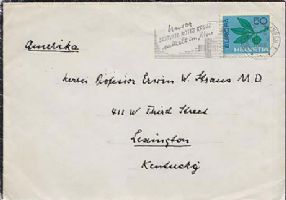 Amerika
EUROPA
50
HELVETIA
Herrn Professor Erwin W. Straus M D
411 W Third Street
Lexington
Kentucky